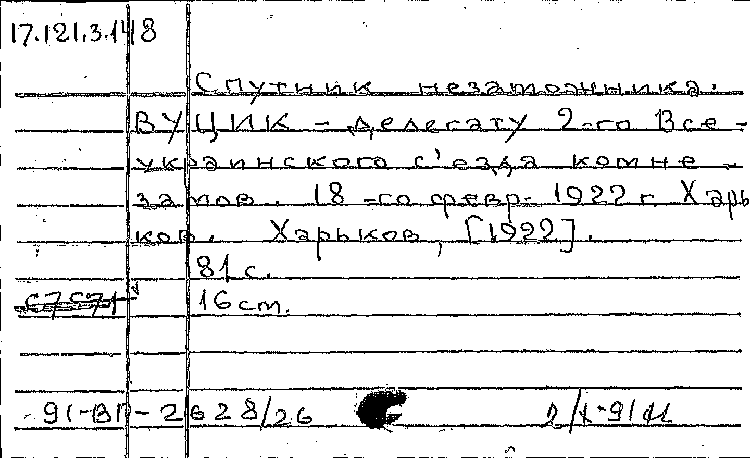 17.121.3.148
Спутник незаможника.
ВУЦИК – делегату 2-го Все-
украинского с'езда комне-
замов. 18-го февр. 1922 г. Харь
ков. Харьков, [1922].
81 с.
16 cm.
91-ВП-2628/26